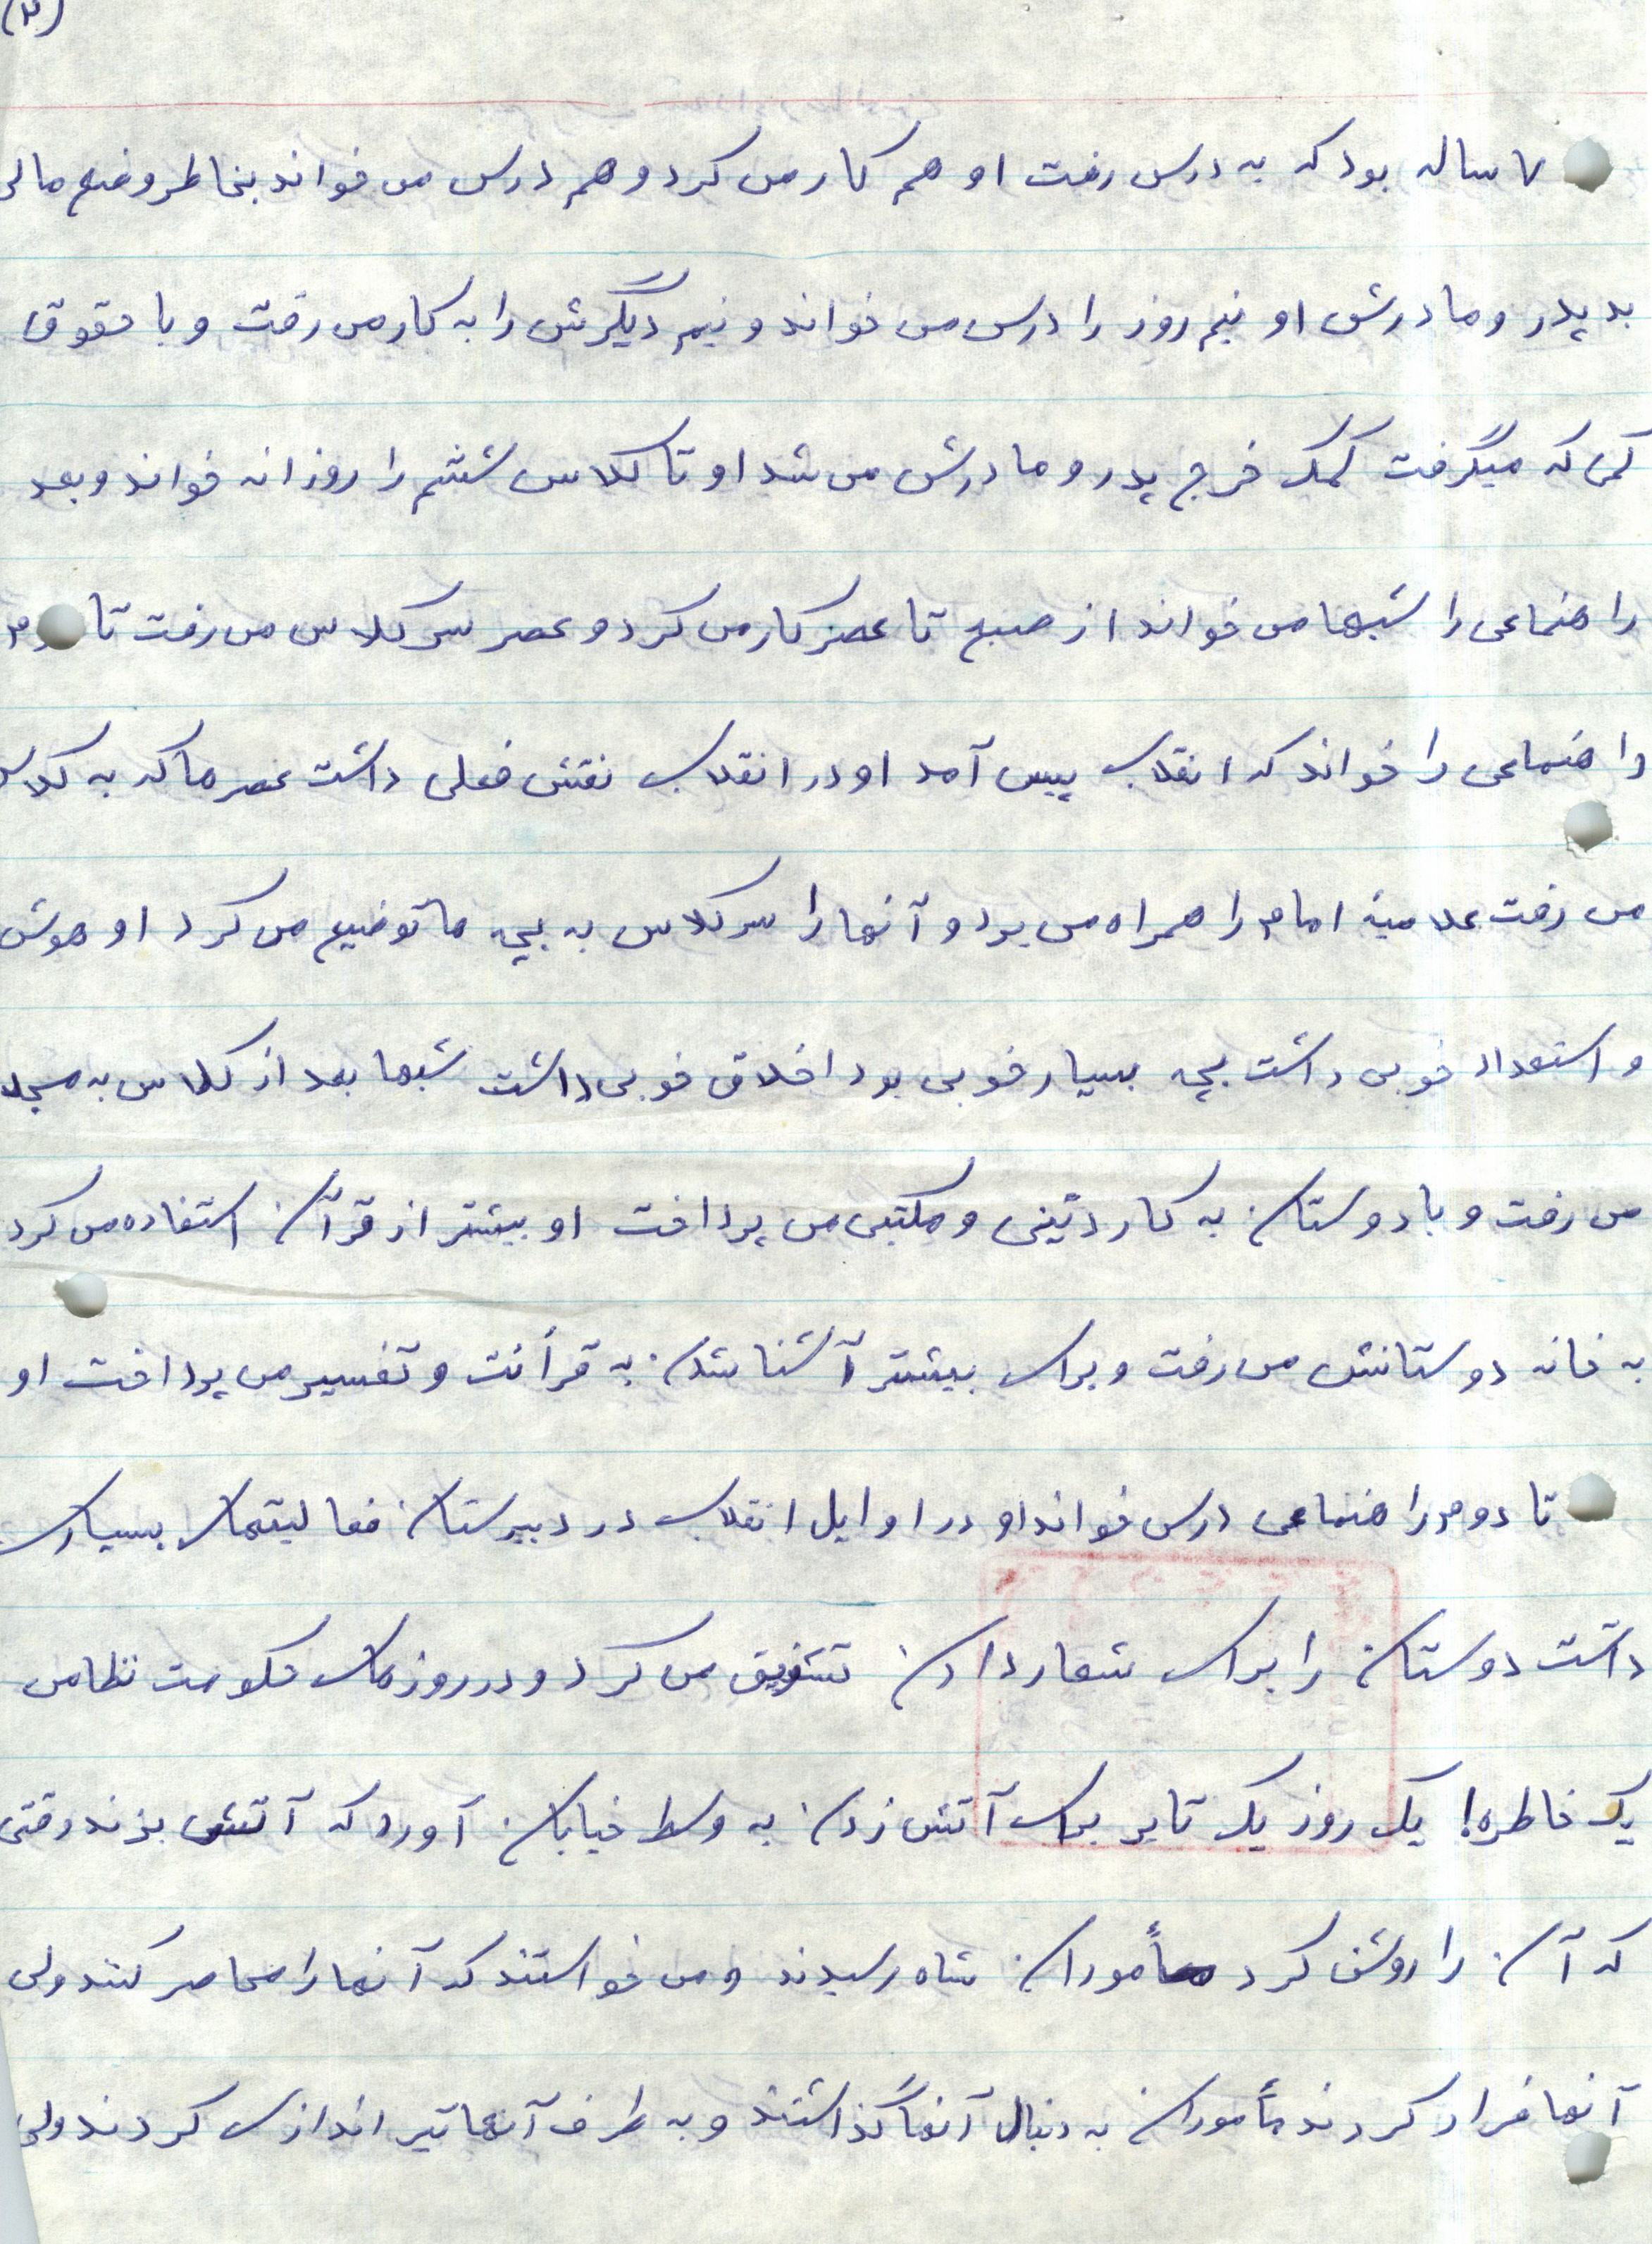 (۲)
۷ ساله بود که به درس رفت او هم کار می کرد و هم درس می خواند بخاطر وضع مالی
بد پدر و مادرش او نیم روز را درس می خواند و نیم دیگرش را به کار می رفت و با حقوق
کمی که میگرفت کمک خرج پدر و مادرش می شد او تا کلاس ششم را روزانه خواند و بعد
راهنماعی را شبها می خواند از صبح تا عصر کار می کرد و عصر سر کلاس می رفت تا
راهنماعی را خواند که انقلاب پیس آمد او در انقلاب نقش فعلی داشت عصرها که به کلاس
می رفت علامیه امام را همراه می برد و آنها را سر کلاس به بچه ها توضیع می کرد او هوش
و استعداد خوبی داشت بچه بسیار خوبی بود اخلاق خوبی داشت شبها بعد از کلاس به مسجد
می رفت و با دوستان به کار دینی و مکتبی می پرداخت او بیشتر از قرآن استفاده می کرد
به خانه دوستانش می رفت و برای بیشتر آشنا شدن به قرأنت و تفسیر می پرداخت او
تا دوم راهنماعی درس خواند او در اوایل انقلاب در دبیرستان فعالیتهای بسیاری
داشت دوستان را برای شعار دادن تشویق می کرد و در روزهای حکومت نظامی
یک خاطره! یک روز یک تایر برای آتش زدن به وسط خیابان آورد که آتش بزند وقتی
که آن را روشن کرد مأموران شاه رسیدند و می خواستند که آنها را محاصر کنند ولی
آنها فرار کردند مأموران به دنبال آنها گذاشتند و به طرف آنها تیر اندازی کردند ولی